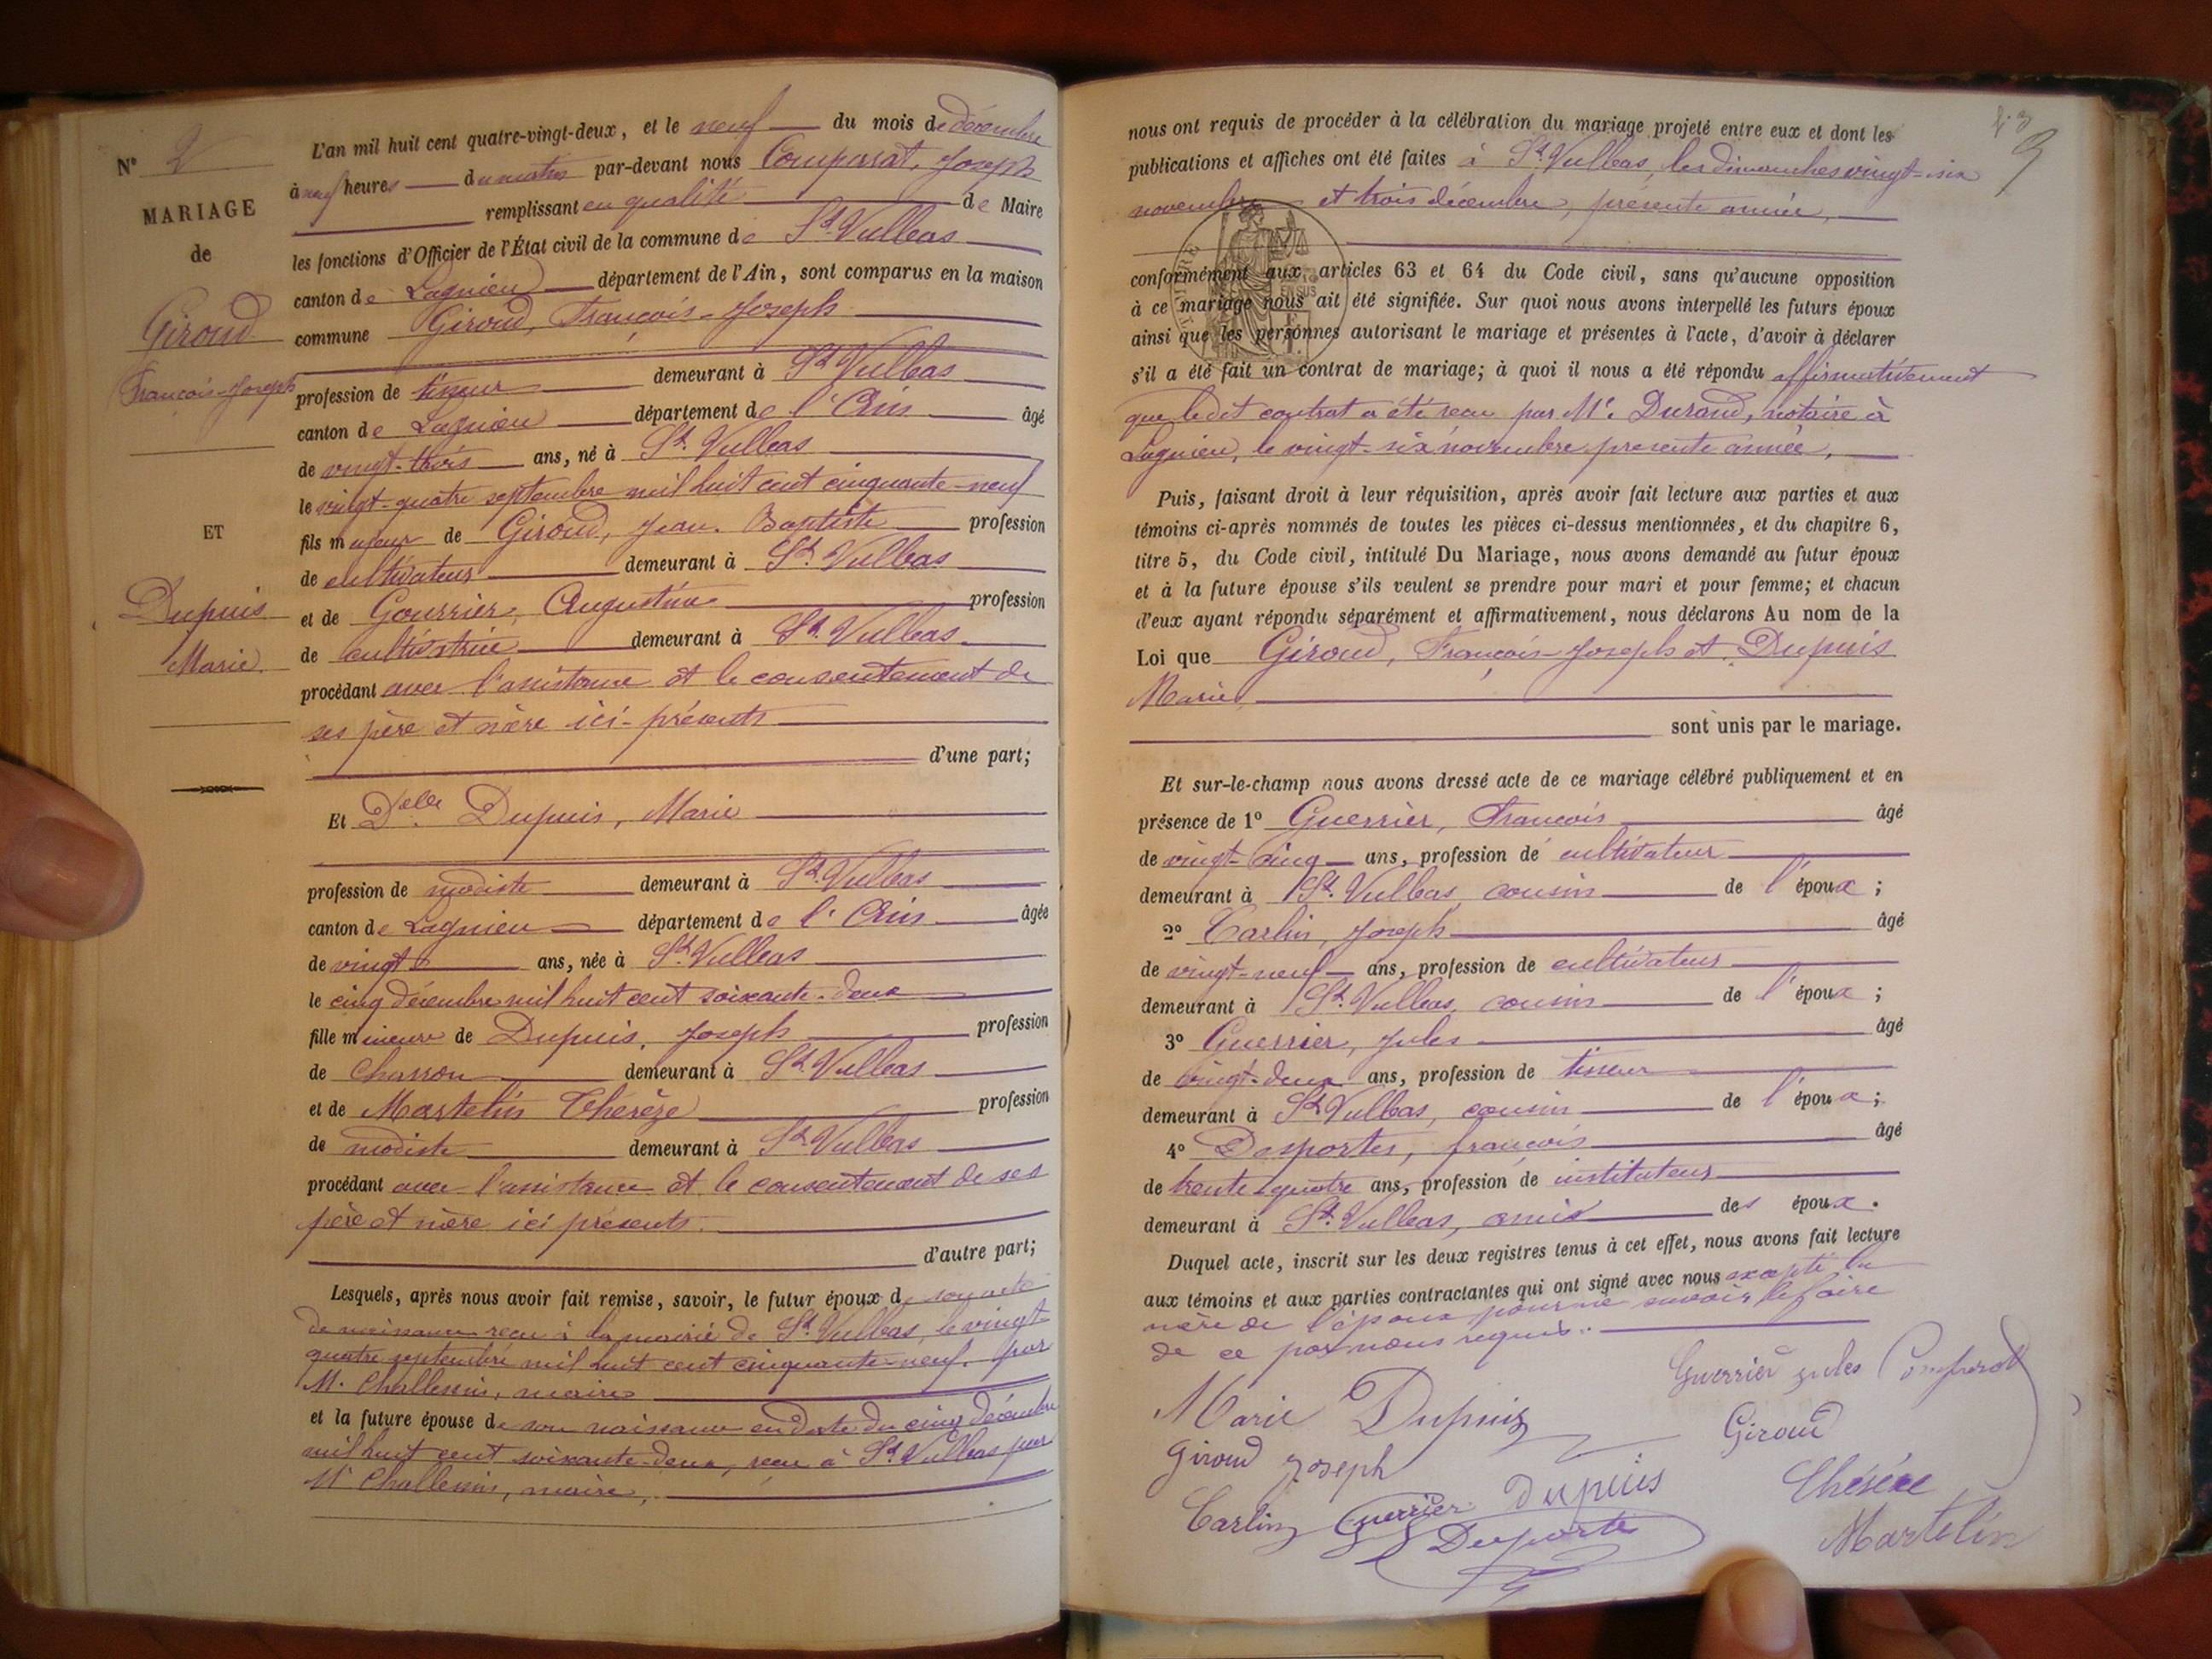 N° 2
MARIAGE
de
Giroud
François-Joseph
ET
Dupuis
Marie
L'an mil huit cent quatre-vingt-deux, et le neuf du mois de décembre
à neuf heures du matin par-devant nous Comparat, Joseph
remplissant en qualité de Maire
les fonctions d'Officier de l'État civil de la commune de St Vulbas
canton de Lagnieu département de l'Ain, sont comparus en la maison
commune Giroud, François-Joseph
profession de tisseur demeurant à St Vulbas
canton de Lagnieu département de l'Ain âgé
de vingt-trois ans, né à St Vulbas
le vingt-quatre septembre mil huit cent cinquante-neuf
fils majeur de Giroud, Jean-Baptiste profession
de cultivateur demeurant à St Vulbas
et de Gourrier, Augustine profession
de cultivatrice demeurant à St Vulbas
procédant avec l'assistance et le consentement de
ses père et mère ici-présents
d'une part;
Et Delle Dupuis, Marie
profession de modiste demeurant à St Vulbas
canton de Lagnieu département de l'Ain âgée
de vingt ans, née à St Vulbas
le cinq décembre mil huit cent soixante-deux
fille mineure de Dupuis, Joseph profession
de Charron demeurant à St Vulbas
et de Martelin Thérèze profession
de modiste demeurant à St Vulbas
procédant avec l'assistance et le consentement de ses
père et mère ici présents.
d'autre part;
Lesquels, après nous avoir fait remise, savoir, le futur époux de son acte
de naissance reçu à la mairie de St Vulbas, le vingt-
quatre septembre mil huit cent cinquante-neuf, par
M. Challessin, maire
et la future épouse de son naissance en date du cinq décembre
mil huit cent soixante-deux, reçu à St Vulbas par
Mr Challessin, maire,
43
9
nous ont requis de procéder à la célébration du mariage projeté entre eux et dont les
publications et affiches ont été faites à St Vulbas, les dimanches vingt-six
novembre et trois décembre, présente année,
conformément aux articles 63 et 64 du Code civil, sans qu'aucune opposition
à ce mariage nous ait été signifiée. Sur quoi nous avons interpellé les futurs époux
ainsi que les personnes autorisant le mariage et présentes à l'acte, d'avoir à déclarer
s'il a été fait un contrat de mariage; à quoi il nous a été répondu affirmativement
que ledit contrat a été reçu par Me Durand, notaire à
Lagnieu, le vingt-six novembre présente année,
Puis, faisant droit à leur réquisition, après avoir fait lecture aux parties et aux
témoins ci-après nommés de toutes les pièces ci-dessus mentionnées, et du chapitre 6,
titre 5, du Code civil, intitulé Du Mariage, nous avons demandé au futur époux
et à la future épouse s'ils veulent se prendre pour mari et pour femme; et chacun
d'eux ayant répondu séparément et affirmativement, nous déclarons Au nom de la
Loi que Giroud, François-Joseph et Dupuis
Marie,
sont unis par le mariage.
Et sur-le-champ nous avons dressé acte de ce mariage célébré publiquement et en
présence de 1° Guerrier, François âgé
de vingt-cinq ans, profession de cultivateur
demeurant à St Vulbas, cousin de l'époux;
2° Carlin, Joseph âgé
de vingt-neuf ans, profession de cultivateur
demeurant à St Vulbas, cousin de l'époux;
3° Guerrier, Jules âgé
de vingt-deux ans, profession de tisseur
demeurant à St Vulbas, cousin de l'époux;
4° Desportes, françois âgé
de trente-quatre ans, profession de instituteur
demeurant à St Vulbas, amis des époux.
Duquel acte, inscrit sur les deux registres tenus à cet effet, nous avons fait lecture
aux témoins et aux parties contractantes qui ont signé avec nous excepté la
mère de l'époux pour ne savoir le faire
de ce par nous requis.
Guerrier jules Comparat
Marie Dupuis
Giroud
Giroud Joseph
Dupuis
Thérèze
Carlin Guerrier
Martelin
Desportes